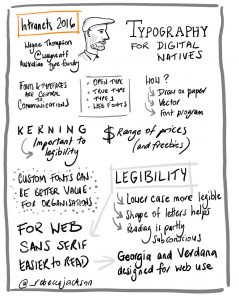 Intranets 2016
Wayne Thompson
@wayneatf
Australian Type Foundry
TYPOGRAPHY
FOR DIGITAL
NATIVES
FONTS & TYPEFACES
ARE CENTRAL
TO
COMMUNICATIONS
OPEN TYPE
TRUE TYPE
TYPE 1
WEB FONTS
HOW?
Draw on paper
Vector
Font program
KERNING
Important to
legibility
$ Range of prices
(and freebies)
CUSTOM FONTS CAN
BE BETTER VALUE
FOR ORGANISATIONS
LEGIBILITY
Lower case more legible
Shape of letters helps
Reading is partly
subconscious
FOR WEB
SANS SERIF
EASIER TO READ
Georgia and Verdana
designed for web use
@_rebeccajackson